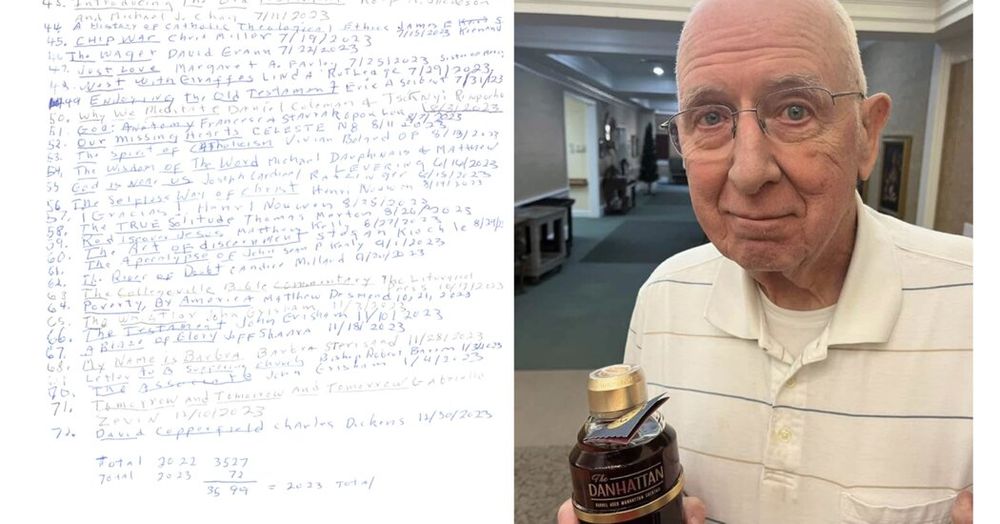 43. Introducing The Old
and Michael J. Chan, 7/11/2023
44. A History of Catholic Theological Ethics James F
45. CHIP WAR Chris Miller 7/19/2023 7/15/2023
The WAGER DAVID Grann 7/22/2023
47. Just Love Margaret A. Farley 7/25/2023
48. West With Giraffes LINDA Rutledge 7/29/2023
49 Enjoying The Old Testament Eric A Seibert 7/31/23
50. Why We Meditate Daniel Goleman & Tsoknyi Rinpoche
51. God: Anatomy Francesca Stavrakopoulou 8/7/2023
52. Our missing Hearts CELESTE NG 8/11/2023
53. The Spirit of Catholicism Vivian Boland OP 8/13/2023
54. The Wisdom of The Word Michael Dauphinais & Matthew
LEVERING 8/14/2023
55 God is near us Joseph Cardinal Ratzinger 8/15/2023
56. The Selfless Way of Christ Henri Nouwen 8/19/2023
57. Gracias! Henri Nouwen 8/25/2023
58. The TRUE Solitude Thomas Merton 8/26/2023
59. Rediscover Jesus Matthew Kelly 8/27/2023
60. The Art of discernment Stefan Kiechle 8/29/23
61. The Apocalypse of John Sean P Kealy 9/1/2023
62. The River of Doubt Candice Millard 9/20/2023
63 The Collegeville Bible Commentary The Liturgical
64. Poverty, By America Matthew Desmond 10,21,2023
65. The Whistler John Grisham 11/3/2023
66. The Testament John Grisham 11/10/2023
67. A Blaze of Glory Jeff Shaara 11/18/2023
68. My Name is Barbra Barbra Streisand 11/28/2023
Letter to a Suffering Church Bishop Robert Barron
70. The Associate John Grisham
71. Tomorrow and Tomorrow and Tomorrow Gabrielle
Zevin 12/10/2023
72. David Copperfield Charles Dickens 12/30/2023
Total 2022 3527
Total 2023 72
3599 = 2023 Total
The
DANHATTAN
BARREL AGED MANHATTAN COCKTAIL